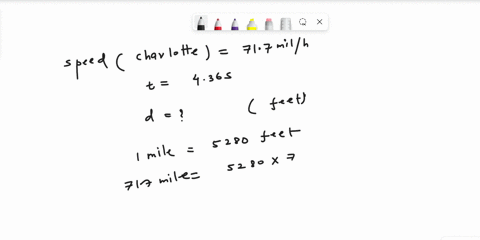 speed ( charlotte ) = 71.7 mil/h
t = 4.36s
d = ? ( feet )
1 mile = 5280 feet
71.7 mile = 5280 × 7